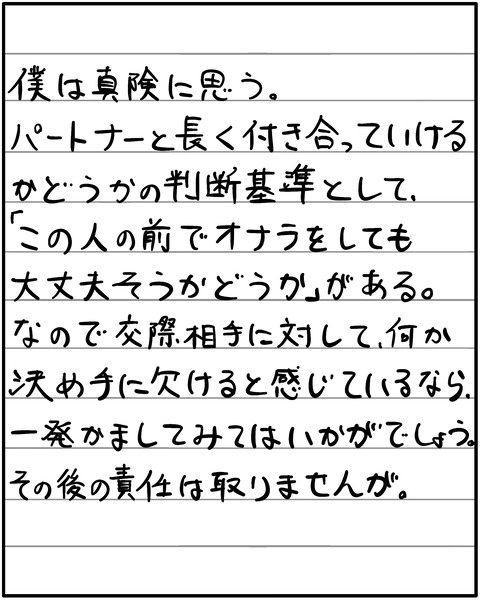 僕は真険に思う。
パートナーと長く付き合っていける
かどうかの判断基準として、
「この人の前でオナラをしても
大丈夫そうかどうか」がある。
なので交際相手に対して、何か
決め手に欠けると感じているなら、
一発かましてみてはいかがでしょう。
その後の責任は取りませんが。